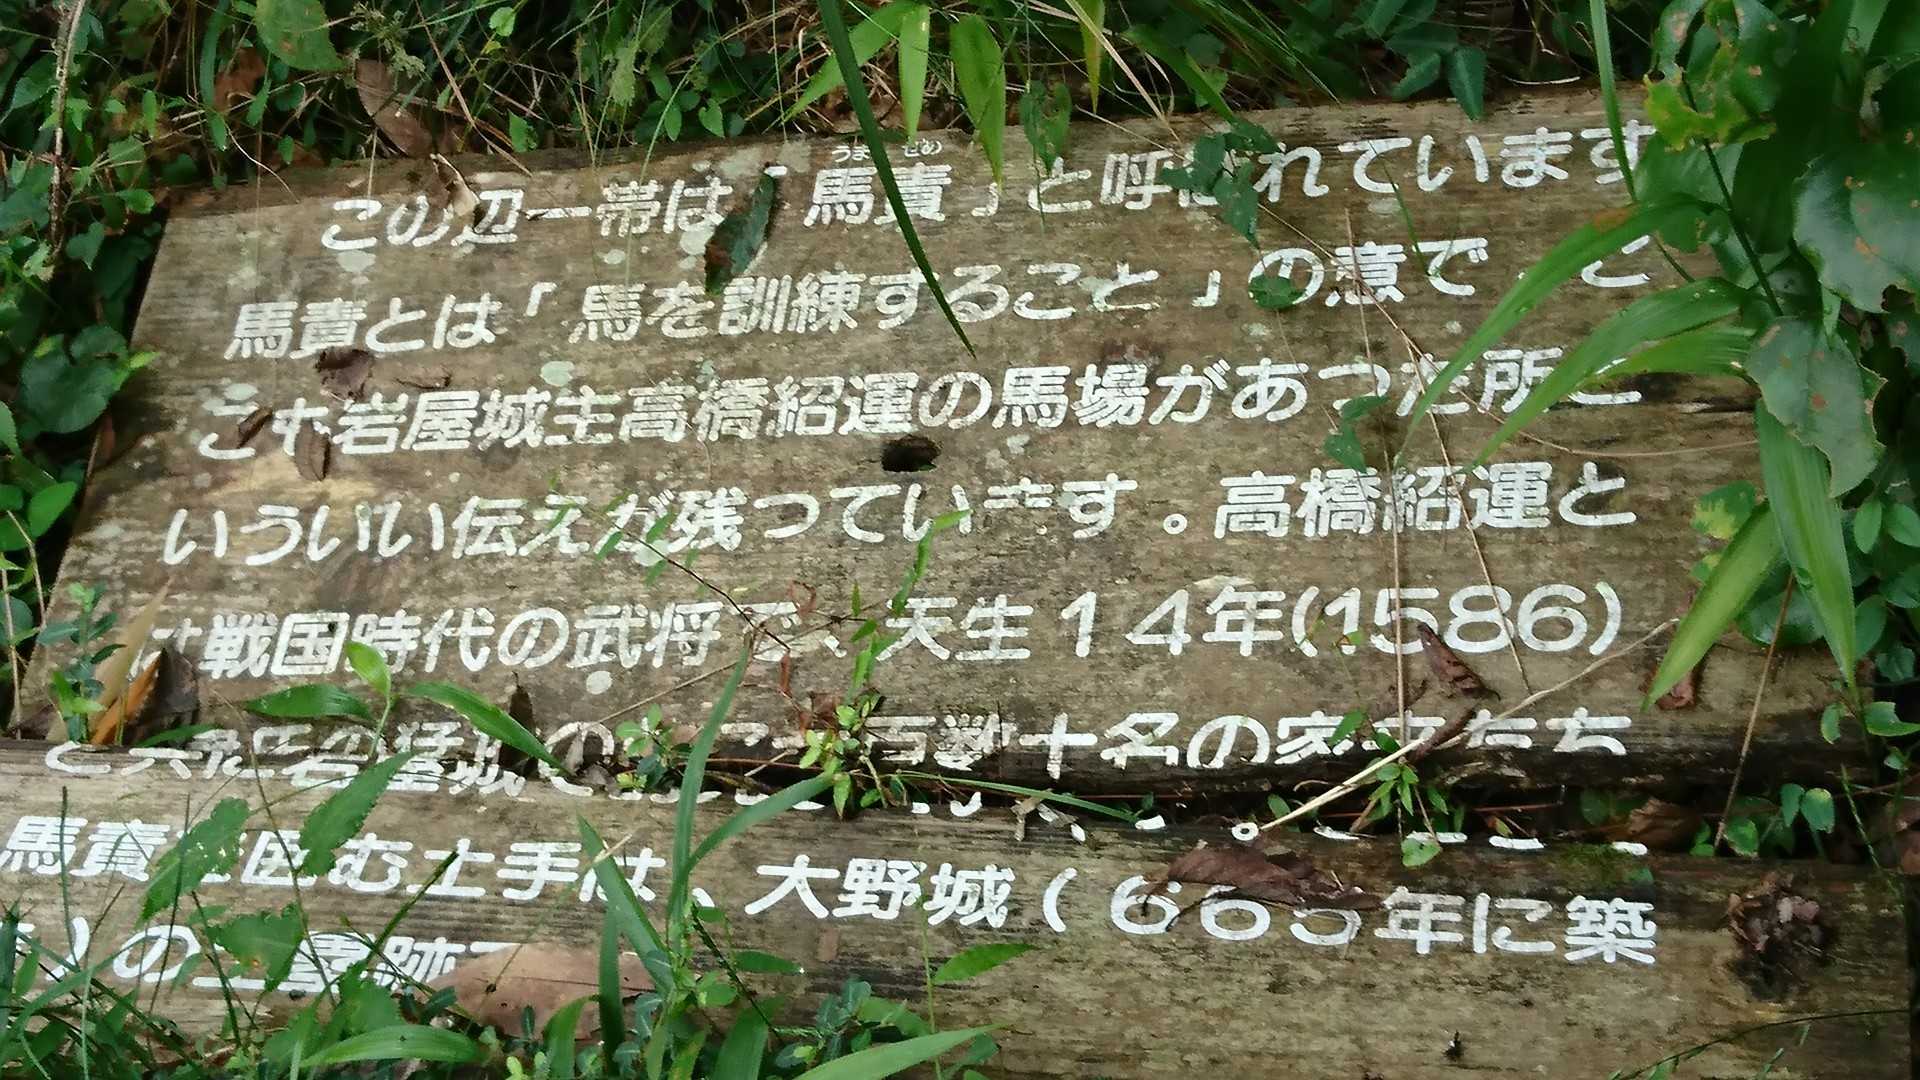 うま ぜめ
この辺一帯は「馬責」と呼ばれています
馬責とは「馬を訓練すること」の意で、こ
こも岩屋城主高橋紹運の馬場があった所と
いういい伝えが残っています。高橋紹運と
は戦国時代の武将で、天生14年(1586)
岩屋城 百数十名の家
馬責を囲む土手は、大野城(665年に築
の土塁跡